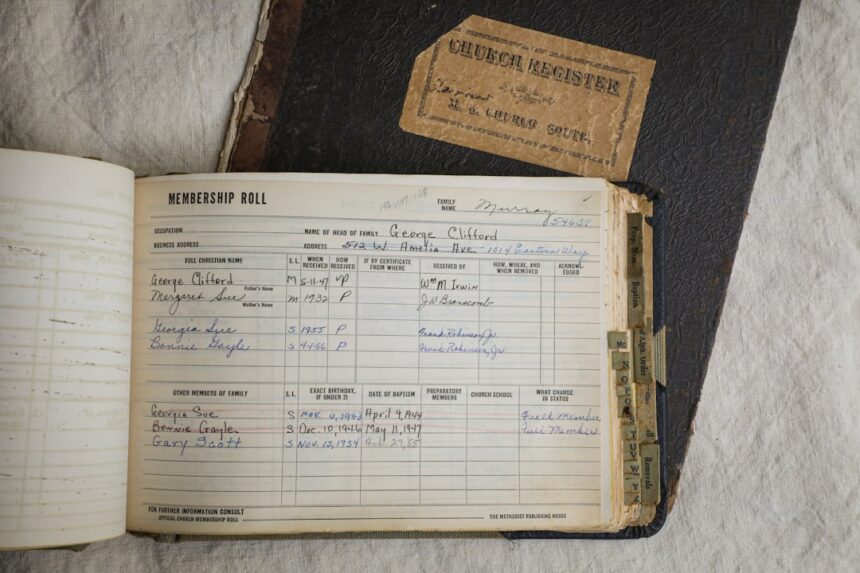 CHURCH REGISTER
M. E. CHURCH SOUTH.
MEMBERSHIP ROLL
FAMILY NAME Murray
54639
OCCUPATION NAME OF HEAD OF FAMILY George Clifford
BUSINESS ADDRESS ADDRESS 512 W. Amelia Ave. 1014 Eastern Way
FULL CHRISTIAN NAME S. L. WHEN RECEIVED HOW RECEIVED IF BY CERTIFICATE FROM WHERE RECEIVED BY HOW, WHERE, AND WHEN REMOVED ACKNOWLEDGED
George Clifford M 5-11-47 P Wm M. Irwin
Father's Name
Margaret Sue m 1932 P
Mother's Name
Georgia Sue S 1955 P Frank Robinson, Jr.
Bonnie Gayle S 4-1-56 P Robinson, Jr.
OTHER MEMBERS OF FAMILY S. L. EXACT BIRTHDAY, IF UNDER 21 DATE OF BAPTISM PREPARATORY MEMBERS CHURCH SCHOOL WHAT CHANGE IN STATUS
Georgia Sue S Nov. 6, 1943 April 9, 1944 Full Member
Bonnie Gayle S Dec. 10, 1946 May 11, 1947 Full Member
Gary Scott S Nov. 12, 1954 Feb. 27, 55
FOR FURTHER INFORMATION CONSULT
OFFICIAL CHURCH MEMBERSHIP ROLL THE METHODIST PUBLISHING HOUSE
Prep. Mem.
Baptism
Alph. Order
Removals